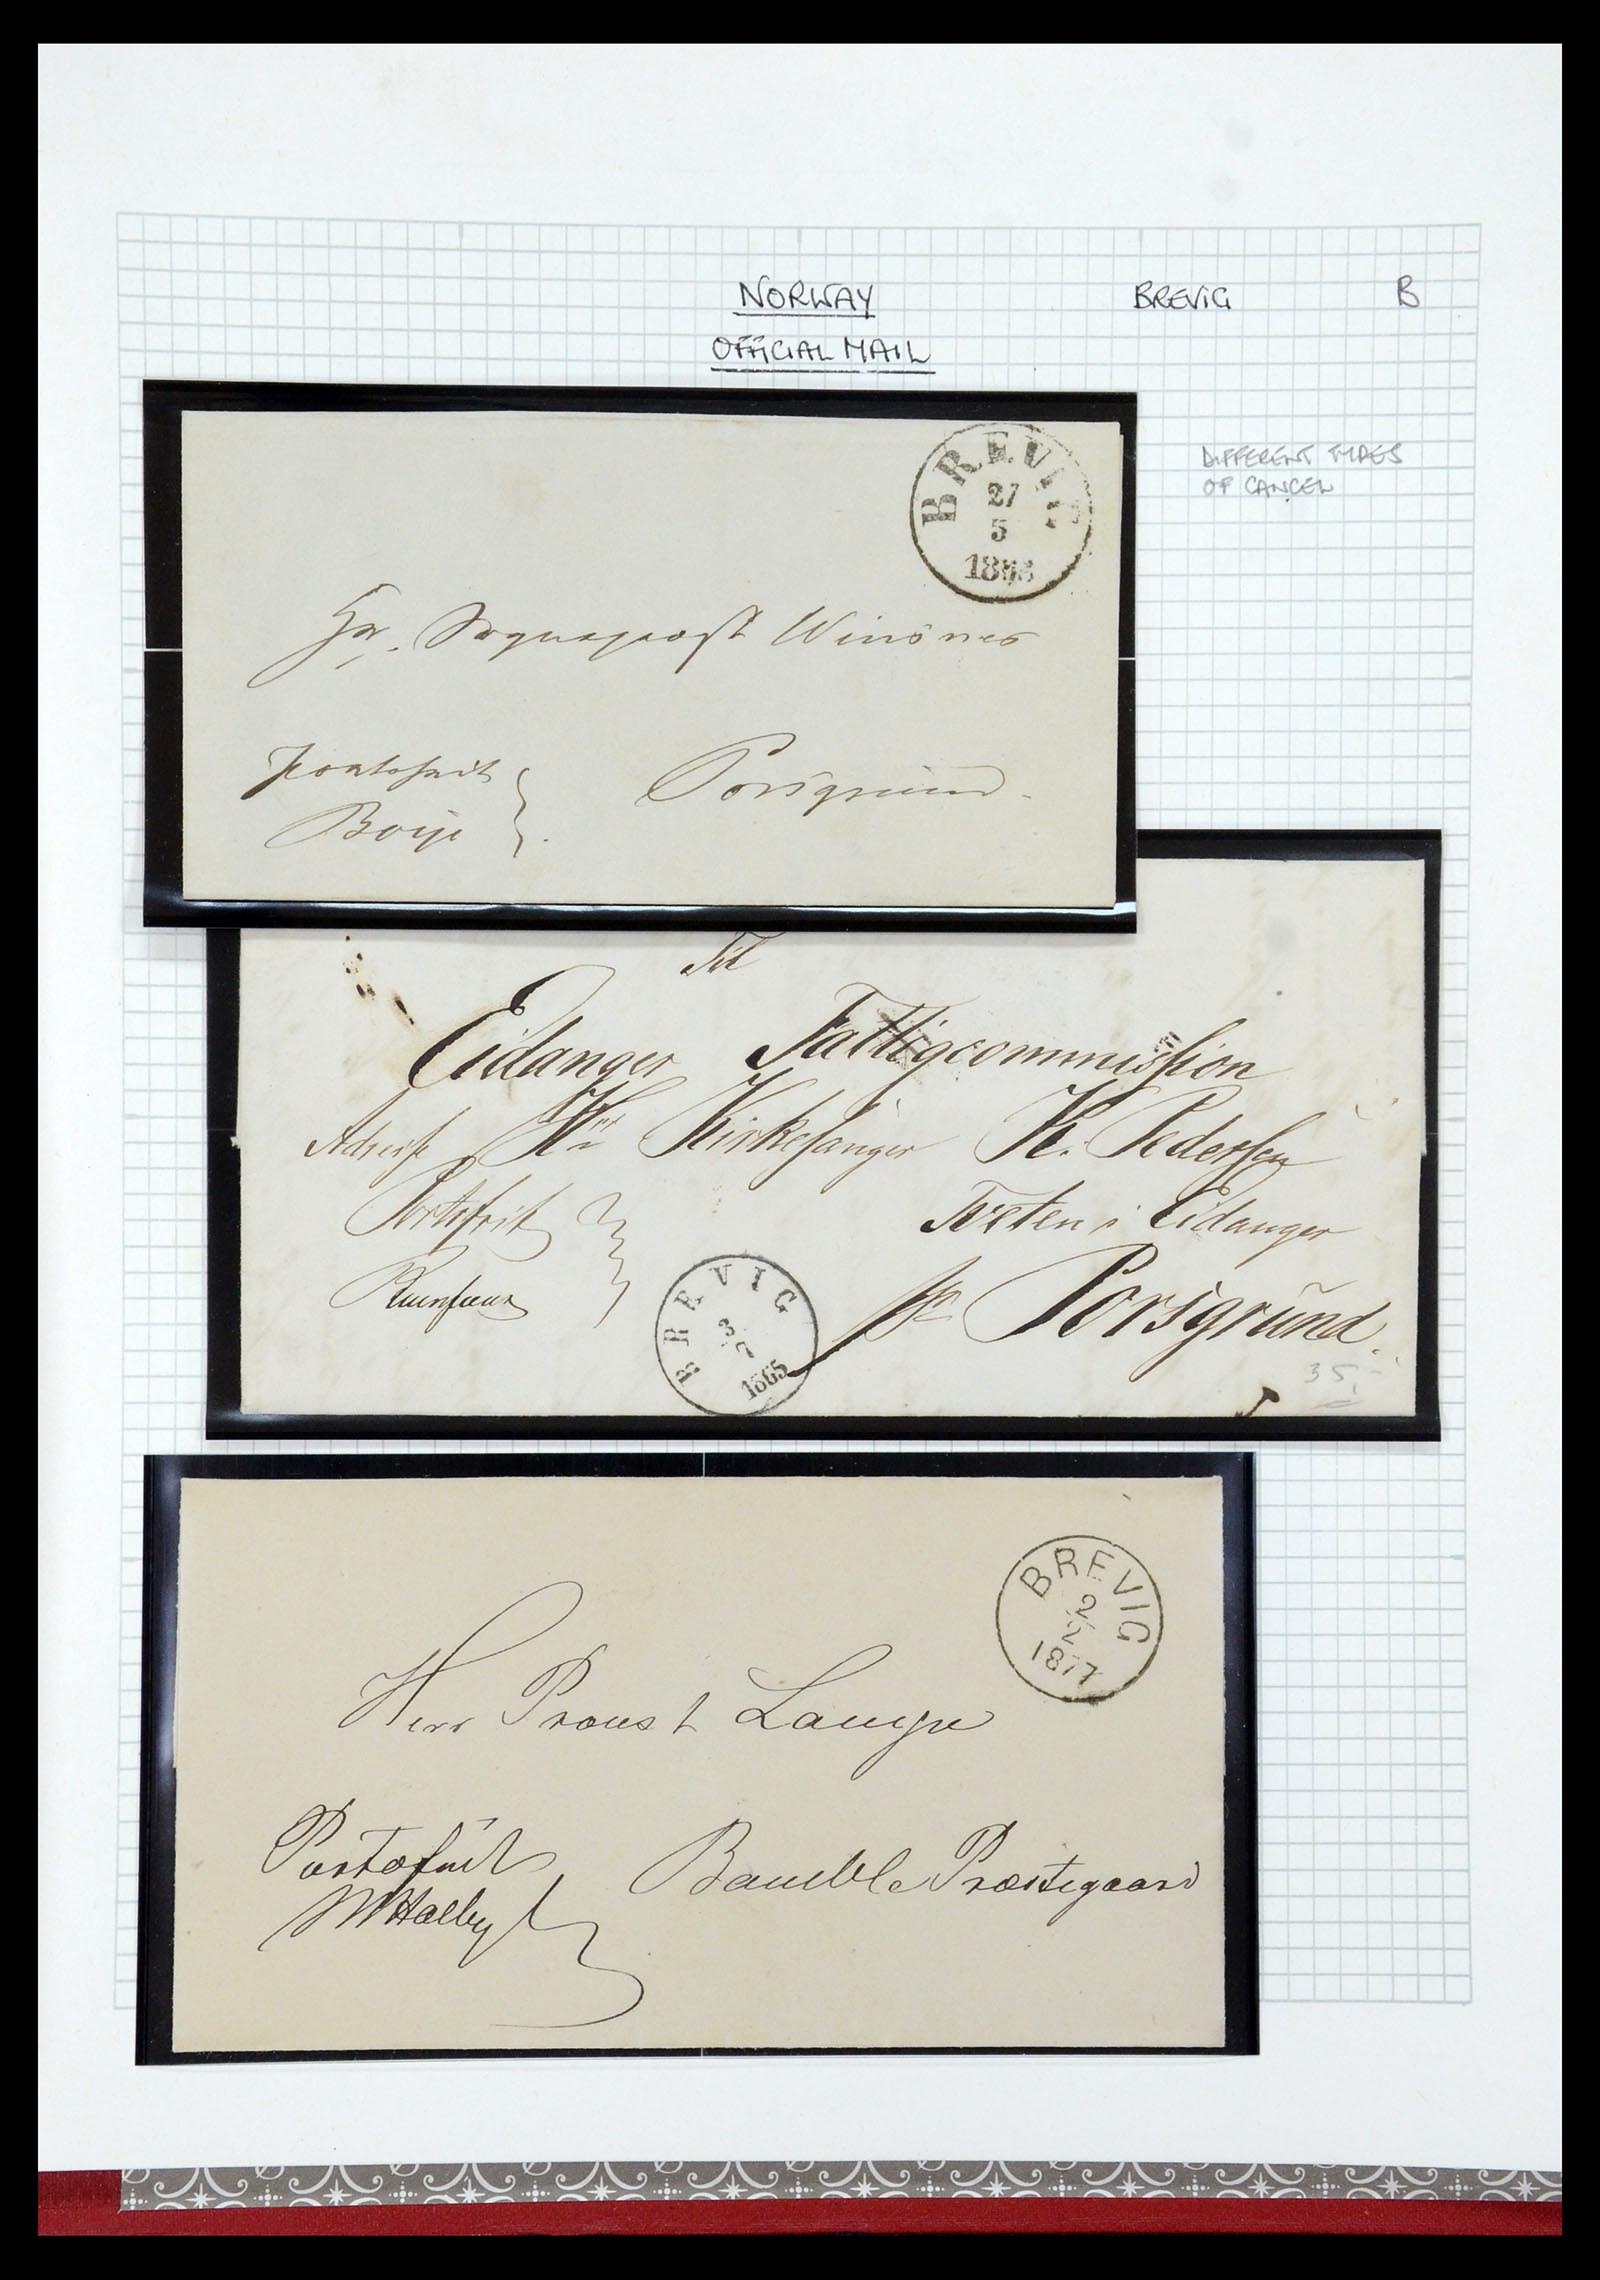 NORWAY
BREVIG
B
OFFICIAL MAIL
DIFFERENT TYPES
OF CANCEL
BREVIG
27
5
Hr. Sognepræst Winsnes
Portofrit
Porsgrund
Til
Eidanger Fattigcommission
Adresse Hr Kirkesanger K. Pedersen
Portofrit
Tveten i Eidanger
pr Porsgrund.
BREVIG
3
7
1865
35,-
BREVIG
2
2
1877
Herr Provst Lampe
Portofrit
Bamble Præstegaard
MHalby